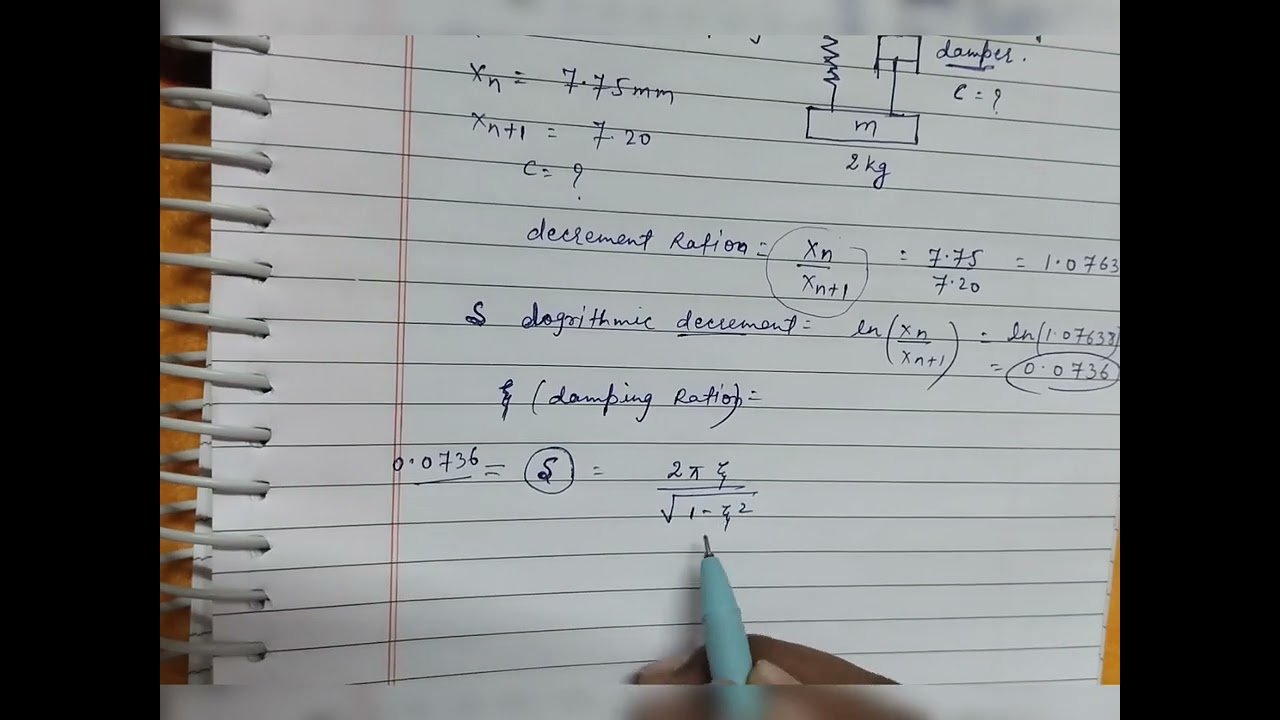 damper.
xn = 7.75mm
C = ?
m
xn+1 = 7.20
2kg
C = ?
decrement Ration = xn/xn+1 = 7.75/7.20 = 1.0763
δ logrithmic decrement = ln(xn/xn+1) = ln(1.07638)
= 0.0736
ξ (damping Ratio) =
0.0736 = δ = 2πξ/√1-ξ²